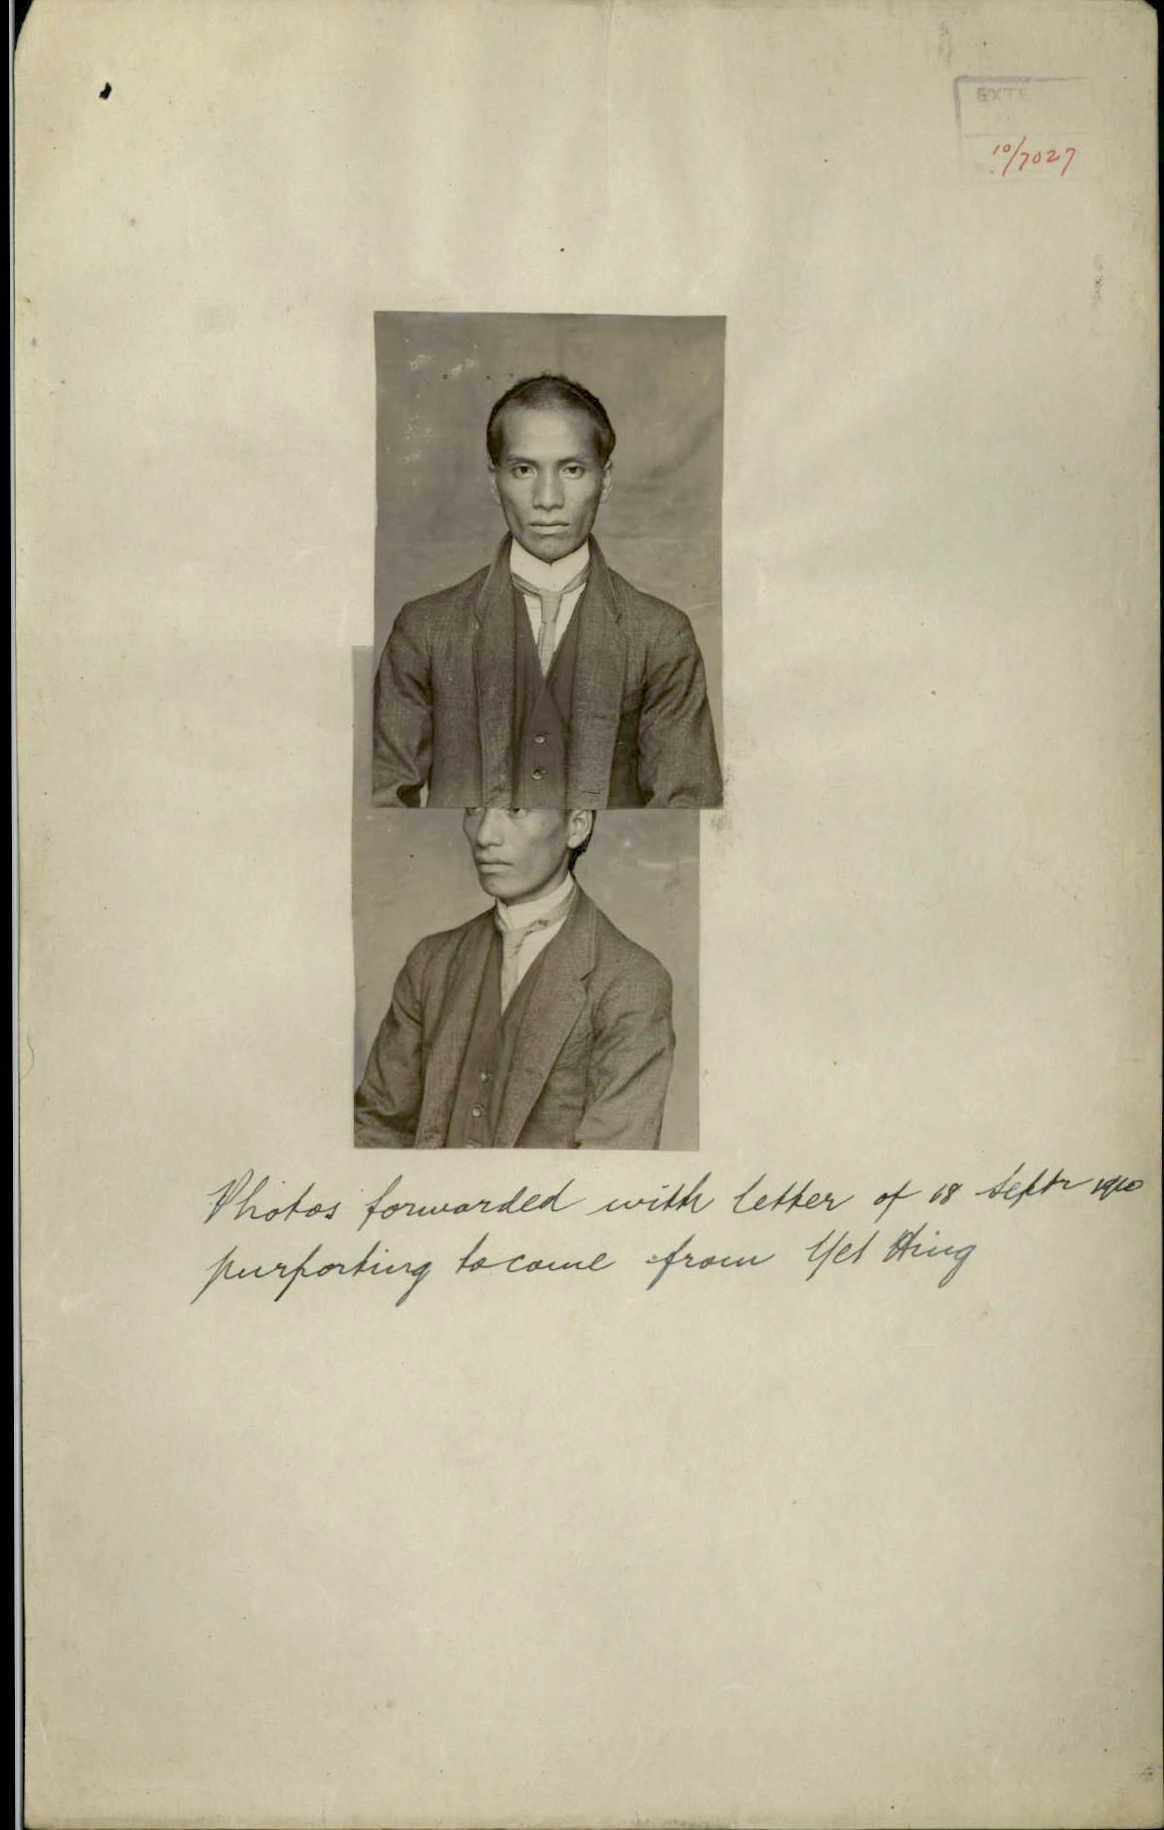 EXTE
10/7027
Photos forwarded with letter of 18 Septr 1910
purporting to come from Yet Hing